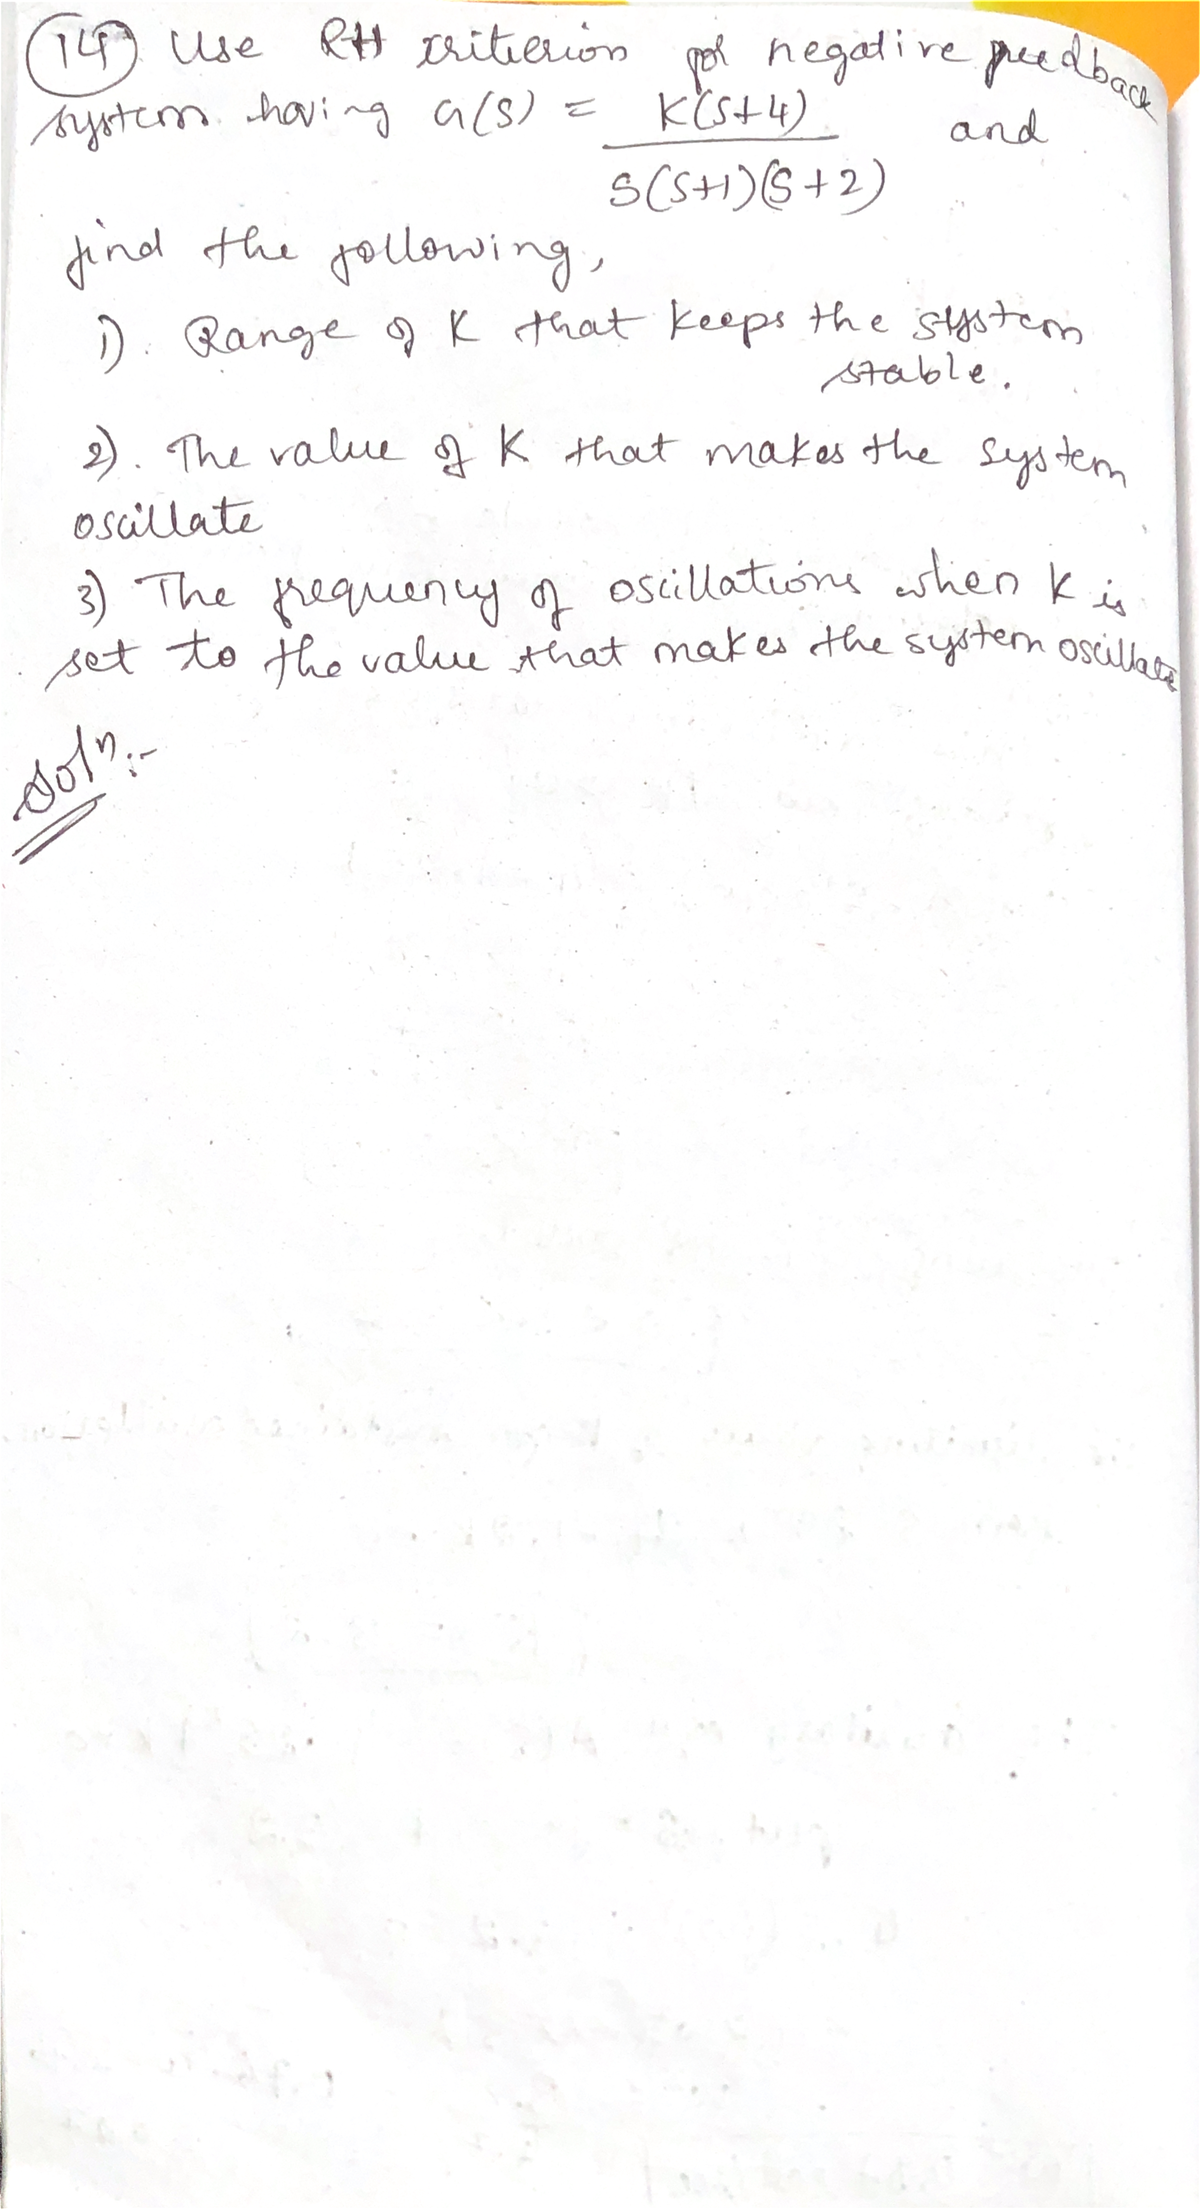 14) Use RH criterion for negative feedback
system having G(S) = K(S+4) and
S(S+1)(S+2)
find the following,
1). Range of K that keeps the system
stable.
2). The value of K that makes the system
oscillate
3) The frequency of oscillations when K is
set to the value that makes the system oscillate
Soln:-